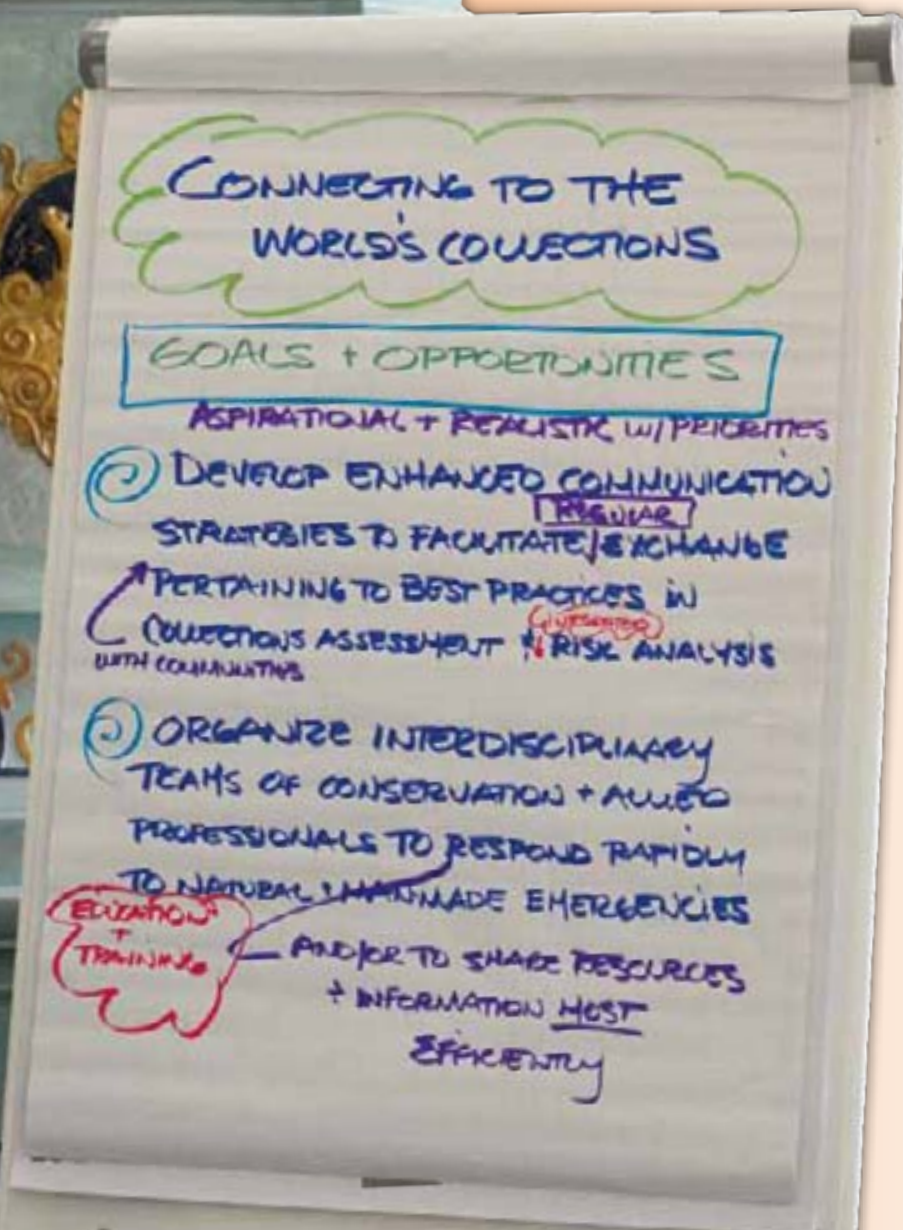 CONNECTING TO THE
WORLD'S COLLECTIONS
GOALS + OPPORTUNITIES
ASPIRATIONAL + REALISTIC W/ PRIORITIES
DEVELOP ENHANCED COMMUNICATION
REGULAR
STRATEGIES TO FACILITATE/EXCHANGE
PERTAINING TO BEST PRACTICES IN
INTEGRATED
COLLECTIONS ASSESSMENT & RISK ANALYSIS
WITH COMMUNITIES
ORGANIZE INTERDISCIPLINARY
TEAMS OF CONSERVATION + ALLIED
PROFESSIONALS TO RESPOND RAPIDLY
TO NATURAL + MANMADE EMERGENCIES
EDUCATION
+
TRAINING
AND/OR TO SHARE RESOURCES
+ INFORMATION MOST
EFFICIENTLY